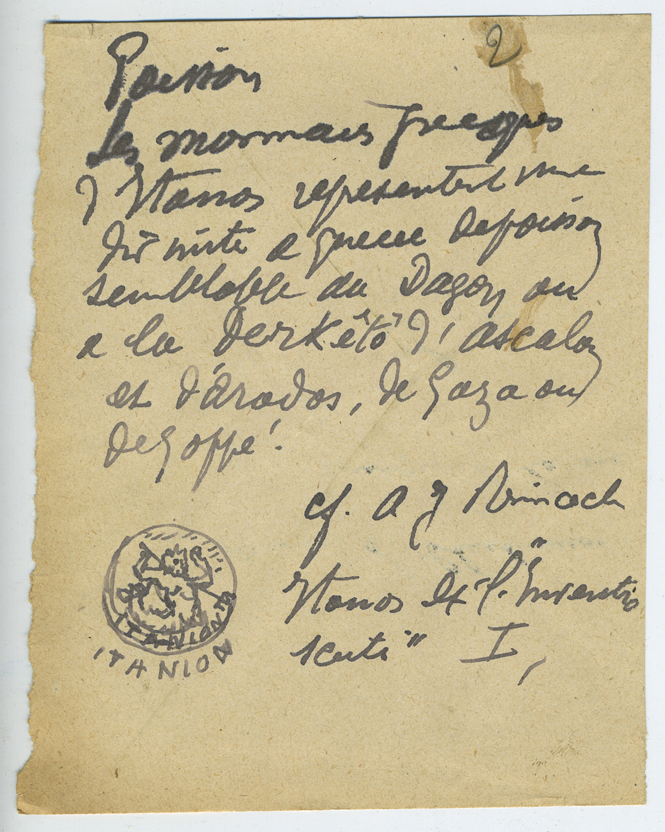 2
Poisson
Les monnaies grecques
d'Itanos representent une
divinite a queue de poisson
semblable au Dagon ou
a la Derkêto d'ascalon
et d'árados, de Gaza ou
de Joppé.
cf. A J Reinach
Itanos et "l'Inventio
scuti" I,
ITANION
ITANION